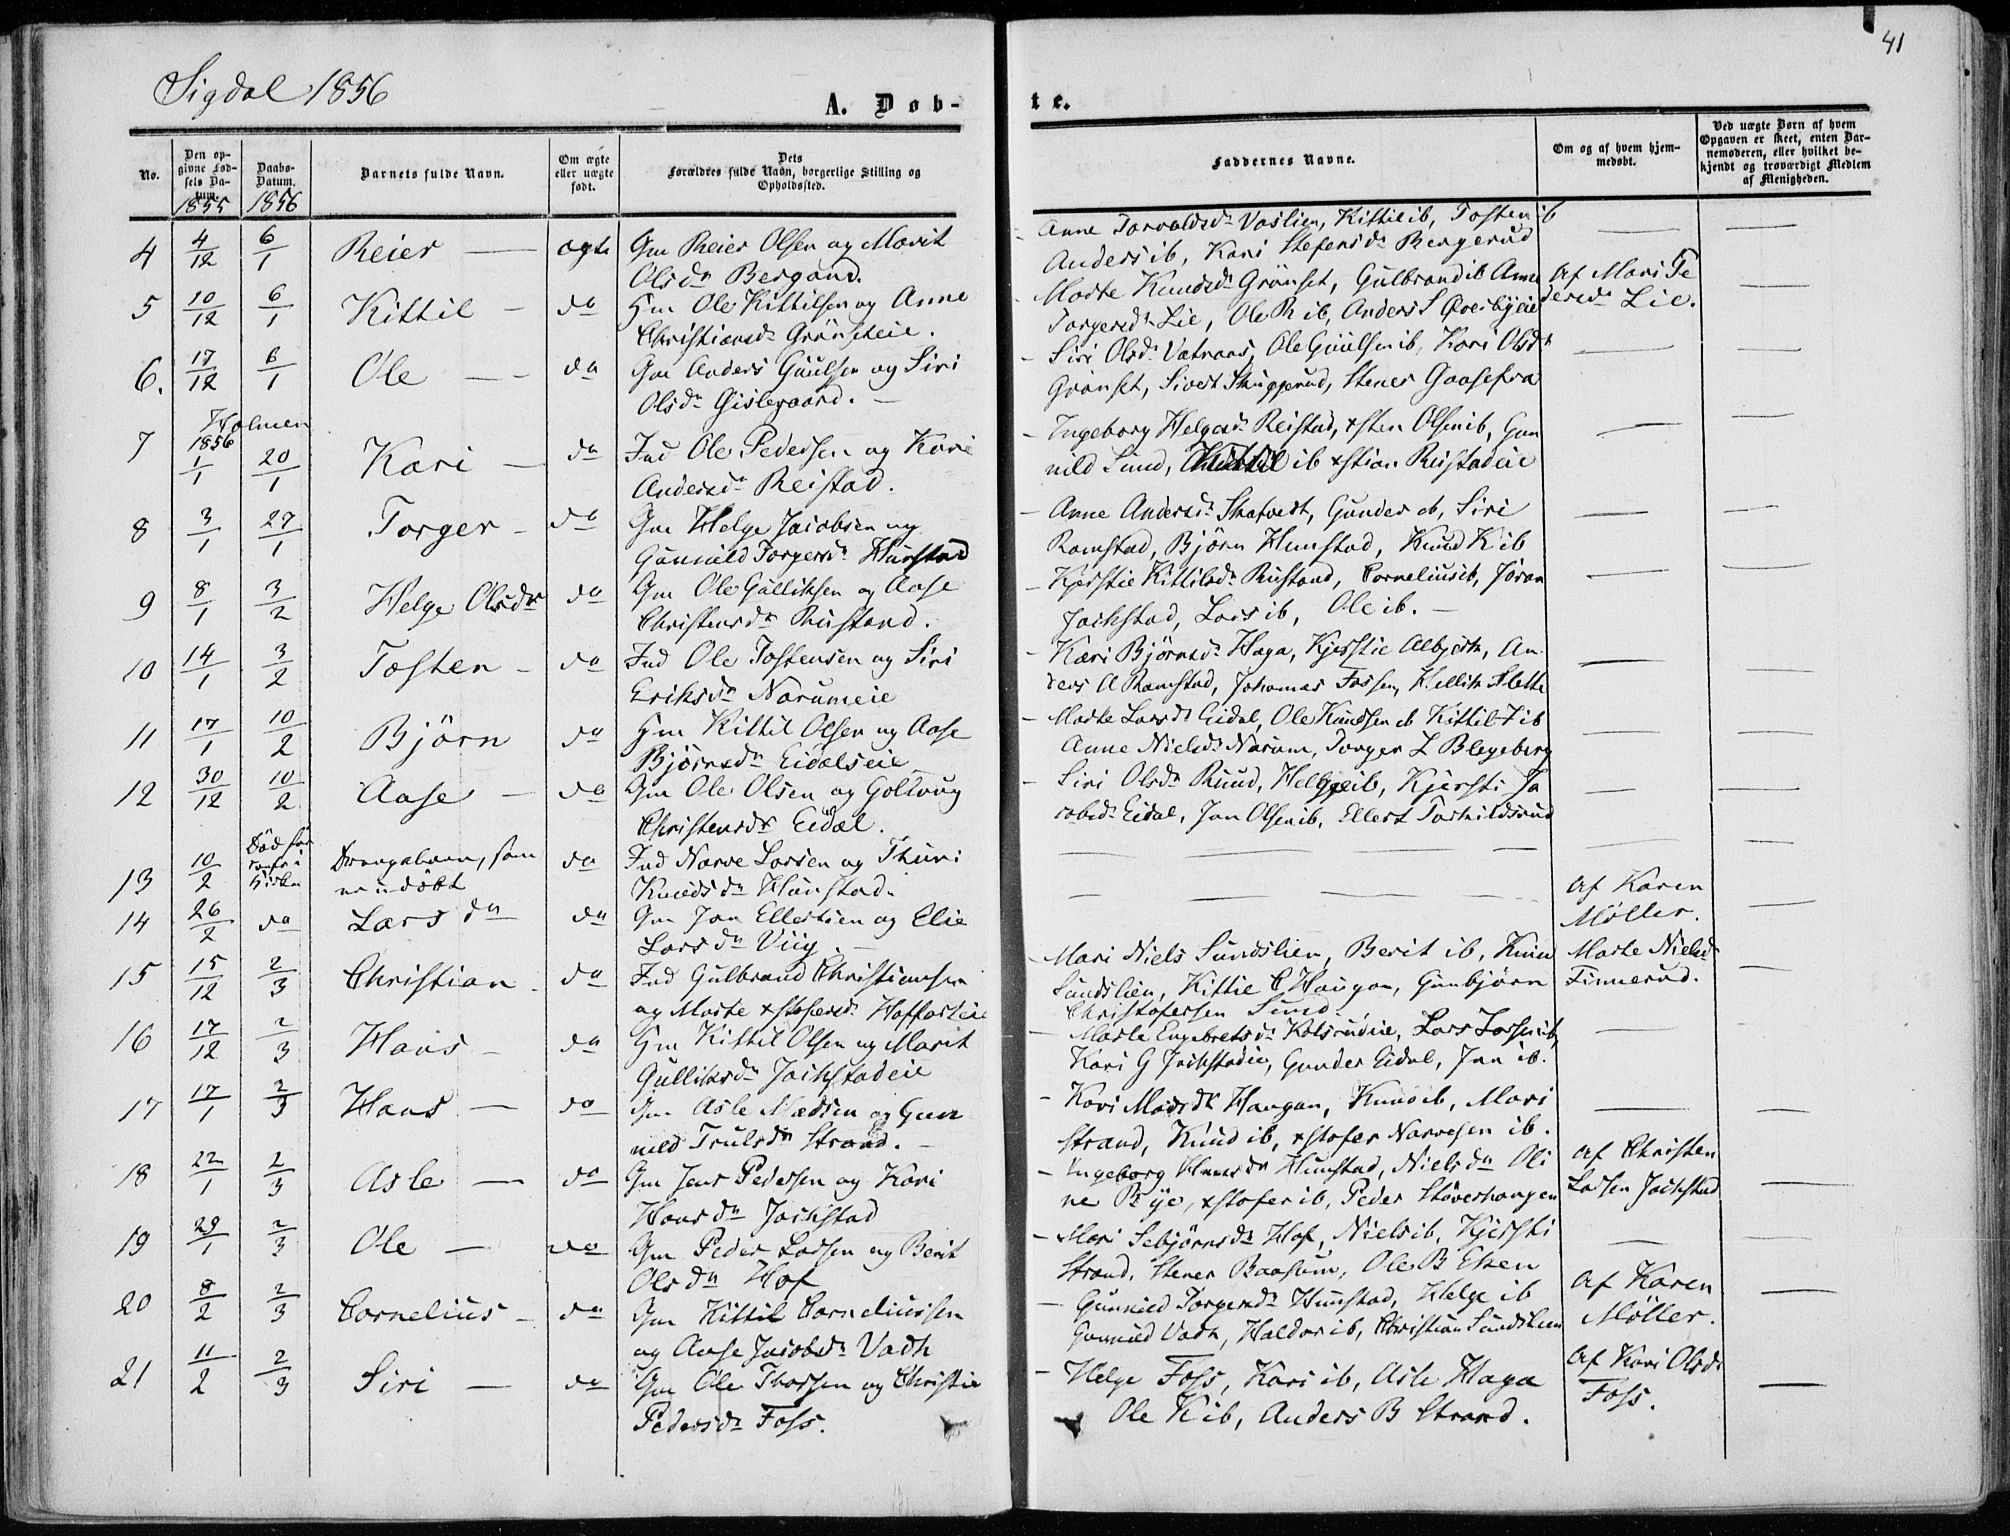 Sigdal 1856
41
A. Døb-
te.
No.
Den op-
givne Fød-
sels Da-
tum.
1855
Daabs-
Datum.
1856
Barnets fulde Navn.
Om ægte
eller uægte
født.
Dets
Forældres fulde Navn, borgerlige Stilling og
Opholdssted.
Faddernes Navne.
Om og af hvem hjem-
medøbt.
Ved uægte Børn af hvem
Opgaven er skeet, enten Bar-
nemoderen, eller hvilket be-
kjendt og troværdigt Medlem
af Menigheden.
4 4/12 6/1 Reier — ægte Gm Reier Olsen og Marit
Olsdr Bergand.
Anne Torvaldsdr Vaslien, Kittil ib, Tosten ib
Anders ib, Kari Stefensdr Bergerud
5 10/12 6/1 Kittil — do Hm Ole Kittilsen og Anne
Christiansdr Grönseteie.
Marte Knudsdr Grönset, Gulbrand ib Anne
Torgersdr Lie, Ole R ib, Anders S
Af Mari Pe
dersdr Lie.
6. 17/12 6/1 Ole — do Gm Anders Guulsen og Siri
Olsdr Gislegaard. —
Siri Olsdr Vatnaas, Ole Guulsen ib, Kari Olsdr
Grönset, Sivert Skuggerud, Stener Gaasefra
Holmen
7 1856 1/1 20/1 Kari — do Ind Ole Pedersen og Kari
Andersdr Reistad.
Ingeborg Helgesdr Reistad, xsten Olsen ib, Gun
nild Sund, ib xstian Reistadeie
8 3/1 27/1 Torger — do Gm Helge Jacobsen og
Gunnild Torgersdr Hunstad
Anne Andersdr Skatvedt, Gunder ib, Siri
Ramstad, Björn Hunstad, Knud K ib
9 8/1 3/2 Helge Olsdr do Gm Ole Gulliksen og Aase
Christensdr Rustand.
Kjerstie Kittilsdr Rustand, Cornelius ib, Jöran
Jackstad, Lars ib, Ole ib. —
10 14/1 3/2 Tosten — do Ind Ole Tostensen og Siri
Eriksdr Narumeie
Kari Björnsdr Haga, Kjerstie Albjerk, An-
ders A Ramstad, Johannes Fossen, Hellik Slette
11 17/1 10/2 Björn do Hm Kittil Olsen og Aase
Björnsdr Eidalseie
Marte Larsdr Eidal, Ole Knudsen ib Kittil T ib
Anne Nielsdr Narum, Torger L Blegeberg
12 30/12 10/2 Aase — do Gm Ole Olsen og Goltoug
Christensdr Eidal.
Siri Olsdr Ruud, Helge ib, Kjersti Ja
cobsdr Eidal, Jan Olsen ib, Ellert Torhildsrud
13 10/2 Död för
Kirken Drengebarn, som
ei döbt do Ind Narve Larsen og Thuri
Knudsdr Hunstad.
14 26/2 do Lars do do Gm Jan Ellertsen og Elie
Larsdr Viig. —
Af Karen
Möller.
15 15/12 2/3 Christian — do Ind Gulbrand Christiansen
og Marte xstofersdr Hoffarteie
Mari Niels Sundslien, Berit ib, Knud
Sundslien, Kittil C Haugan, Gunbjörn
Christofersen Sund.
Marte Nielsdr
Finnerud.
16 17/12 2/3 Hans — do Hm Kittil Olsen og Marit
Gulliksdr Jackstadeie
Marte Engebretsdr Kolsrudeie, Lars Larsen ib,
Kari G Jackstadeie, Gunder Eidal, Jan ib.
17 17/1 2/3 Hans — do Gm Asle Madsen og Gun
nild Trulsdr Strand. —
Kari Madsdr Haugan, Knud ib, Mari
Strand, Knud ib, xstofer Narvesen ib.
18 22/1 2/3 Asle — do Gm Jens Pedersen og Kari
Hansdr Jackstad
Ingeborg Hansdr Hunstad, Niels do Oli
ne Bye, xstofer ib, Peder Stöverhaugen
Af Christen
Larsen Jackstad
19 29/1 2/3 Ole — do Gm Peder Larsen og Berit
Olsdr Hof
Mari Sebjörnsdr Hof, Niels ib, Kjersti
Strand, Stener Baasum, Ole B Eken
20 8/2 2/3 Cornelius — do Gm Kittil Corneliussen
og Aase Jacobsdr Vadh
Gunnild Torgersdr Hunstad, Helge ib
Gunnild Vadh, Haldor ib, Christian Sundslien
Af Karen
Möller.
21 11/2 2/3 Siri — do Gm Ole Thorsen og Christie
Pedersdr Foss.
Helge Foss, Kari ib, Asle Haga
Ole K ib, Anders B Strand.
Af Kari Olsdr
Foss.